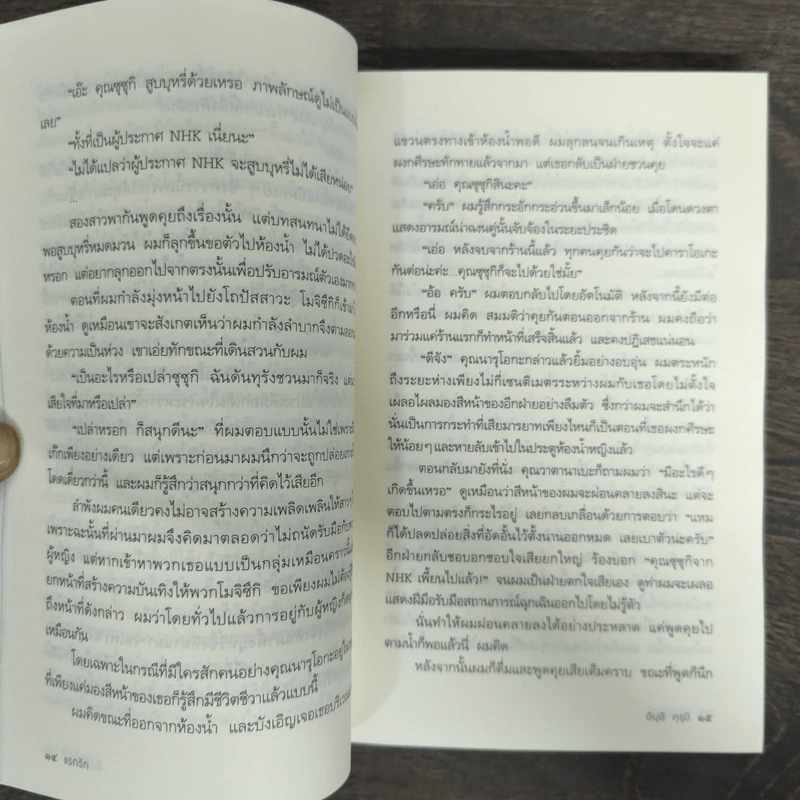 "เอ๊ะ คุณซุซุกิ สูบบุหรี่ด้วยเหรอ ภาพลักษณ์ดูไม่เป็น
เลย"
"ทั้งที่เป็นผู้ประกาศ NHK เนี่ยนะ"
"ไม่ได้แปลว่าผู้ประกาศ NHK จะสูบบุหรี่ไม่ได้เสียหน่อย
สองสาวพากันพูดคุยถึงเรื่องนั้น แต่บทสนทนาไม่ได้
พอสูบบุหรี่หมดมวน ผมก็ลุกขึ้นขอตัวไปห้องน้ำ ไม่ได้ปวดอะไร
หรอก แต่อยากลุกออกไปจากตรงนั้นเพื่อปรับอารมณ์ตัวเอง
ตอนที่ผมกำลังมุ่งหน้าไปยังโถปัสสาวะ โมจิซึกิก็เข้ามา
ห้องน้ำ ดูเหมือนเขาจะสังเกตเห็นว่าผมกำลังลำบากจึงตาม
ด้วยความเป็นห่วง เขาเอ่ยทักขณะที่เดินสวนกับผม
"เป็นอะไรหรือเปล่าซุซุกิ ฉันดันทุรังชวนมาก็จริง แต่
เสียใจที่มาหรือเปล่า"
"เปล่าหรอก ก็สนุกดีนะ" ที่ผมตอบแบบนั้นไม่ใช่เพราะ
เก๊กเพียงอย่างเดียว แต่เพราะก่อนมาผมนึกว่าจะถูกปล่อย
โดดเดี่ยวกว่านี้ และผมก็รู้สึกว่าสนุกกว่าที่คิดไว้เสียอีก
ลำพังผมคนเดียวคงไม่อาจสร้างความเพลิดเพลินให้สาวๆ
เพราะฉะนั้นที่ผ่านมาผมจึงคิดมาตลอดว่าไม่ถนัดรับมือกับ
ผู้หญิง แต่หากเข้าหาพวกเธอแบบเป็นกลุ่มเหมือนคราวนี้
ยกหน้าที่สร้างความบันเทิงให้พวกโมจิซึกิ ขอเพียงผมไม่ต้อง
ถึงหน้าที่ดังกล่าว ผมว่าโดยทั่วไปแล้วการอยู่กับผู้หญิงก็
เหมือนกัน
โดยเฉพาะในกรณีที่มีใครสักคนอย่างคุณนารุโอกะอยู่
ที่เพียงแค่มองสีหน้าของเธอก็รู้สึกมีชีวิตชีวาแล้วแบบนี้
ผมคิดขณะที่ออกจากห้องน้ำ และบังเอิญเจอเธอบริเวณ
๑๔ แรกรัก
แขวนตรงทางเข้าห้องน้ำพอดี ผมลุกลนจนเกินเหตุ ตั้งใจจะแค่
ผงกศีรษะทักทายแล้วจากมา แต่เธอกลับเป็นฝ่ายชวนคุย
"เอ่อ คุณซุซุกิสินะคะ"
"ครับ" ผมรู้สึกกระอักกระอ่วนขึ้นมาเล็กน้อย เมื่อโดนดวงตา
แสดงอารมณ์น่าฉงนคู่นั้นจับจ้องในระยะประชิด
"เอ่อ หลังจบจากร้านนี้แล้ว ทุกคนคุยกันว่าจะไปคาราโอเกะ
กันต่อน่ะค่ะ คุณซุซุกิก็จะไปด้วยใช่มั้ย"
"อ้อ ครับ" ผมตอบกลับไปโดยอัตโนมัติ หลังจากนี้ยังมีต่อ
อีกหรือนี่ ผมคิด สมมติว่าคุยกันตอนออกจากร้าน ผมคงถือว่า
มาร่วมแค่ร้านแรกก็ทำหน้าที่เสร็จสิ้นแล้ว และคงปฏิเสธแน่นอน
"ดีจัง" คุณนารุโอกะกล่าวแล้วยิ้มอย่างอบอุ่น ผมตระหนัก
ถึงระยะห่างเพียงไม่กี่เซนติเมตรระหว่างผมกับเธอโดยไม่ตั้งใจ
เผลอไผลมองสีหน้าของอีกฝ่ายอย่างลืมตัว ซึ่งกว่าผมจะสำนึกได้ว่า
นั่นเป็นการกระทำที่เสียมารยาทเพียงไหนก็เป็นตอนที่เธอผงกศีรษะ
ให้น้อยๆ และหายลับเข้าไปในประตูห้องน้ำหญิงแล้ว
ตอนกลับมายังที่นั่ง คุณวาตานาเบะก็ถามผมว่า "มีอะไรดีๆ
เกิดขึ้นเหรอ" ดูเหมือนว่าสีหน้าของผมจะผ่อนคลายลงสินะ แต่จะ
ตอบไปตามตรงก็กระไรอยู่ เลยกลบเกลื่อนด้วยการตอบว่า "แหม
ก็ได้ปลดปล่อยสิ่งที่อัดอั้นไว้ตั้งนานออกหมด เลยเบาตัวนะครับ"
อีกฝ่ายกลับชอบอกชอบใจเสียยกใหญ่ ร้องบอก "คุณซุซุกิจาก
NHK เพี้ยนไปแล้ว!" จนผมเป็นฝ่ายตกใจเสียเอง ดูท่าผมจะเผลอ
แสดงฝีมือรับมือสถานการณ์ฉุกเฉินออกไปโดยไม่รู้ตัว
นั่นทำให้ผมผ่อนคลายลงได้อย่างประหลาด แค่พูดคุยไป
ตามน้ำก็พอแล้วนี่ ผมคิด
หลังจากนั้นผมก็ดื่มและพูดคุยเสียเต็มคราบ ขณะที่พูดก็นึก
อินุอิ คุรุมิ ๑๕